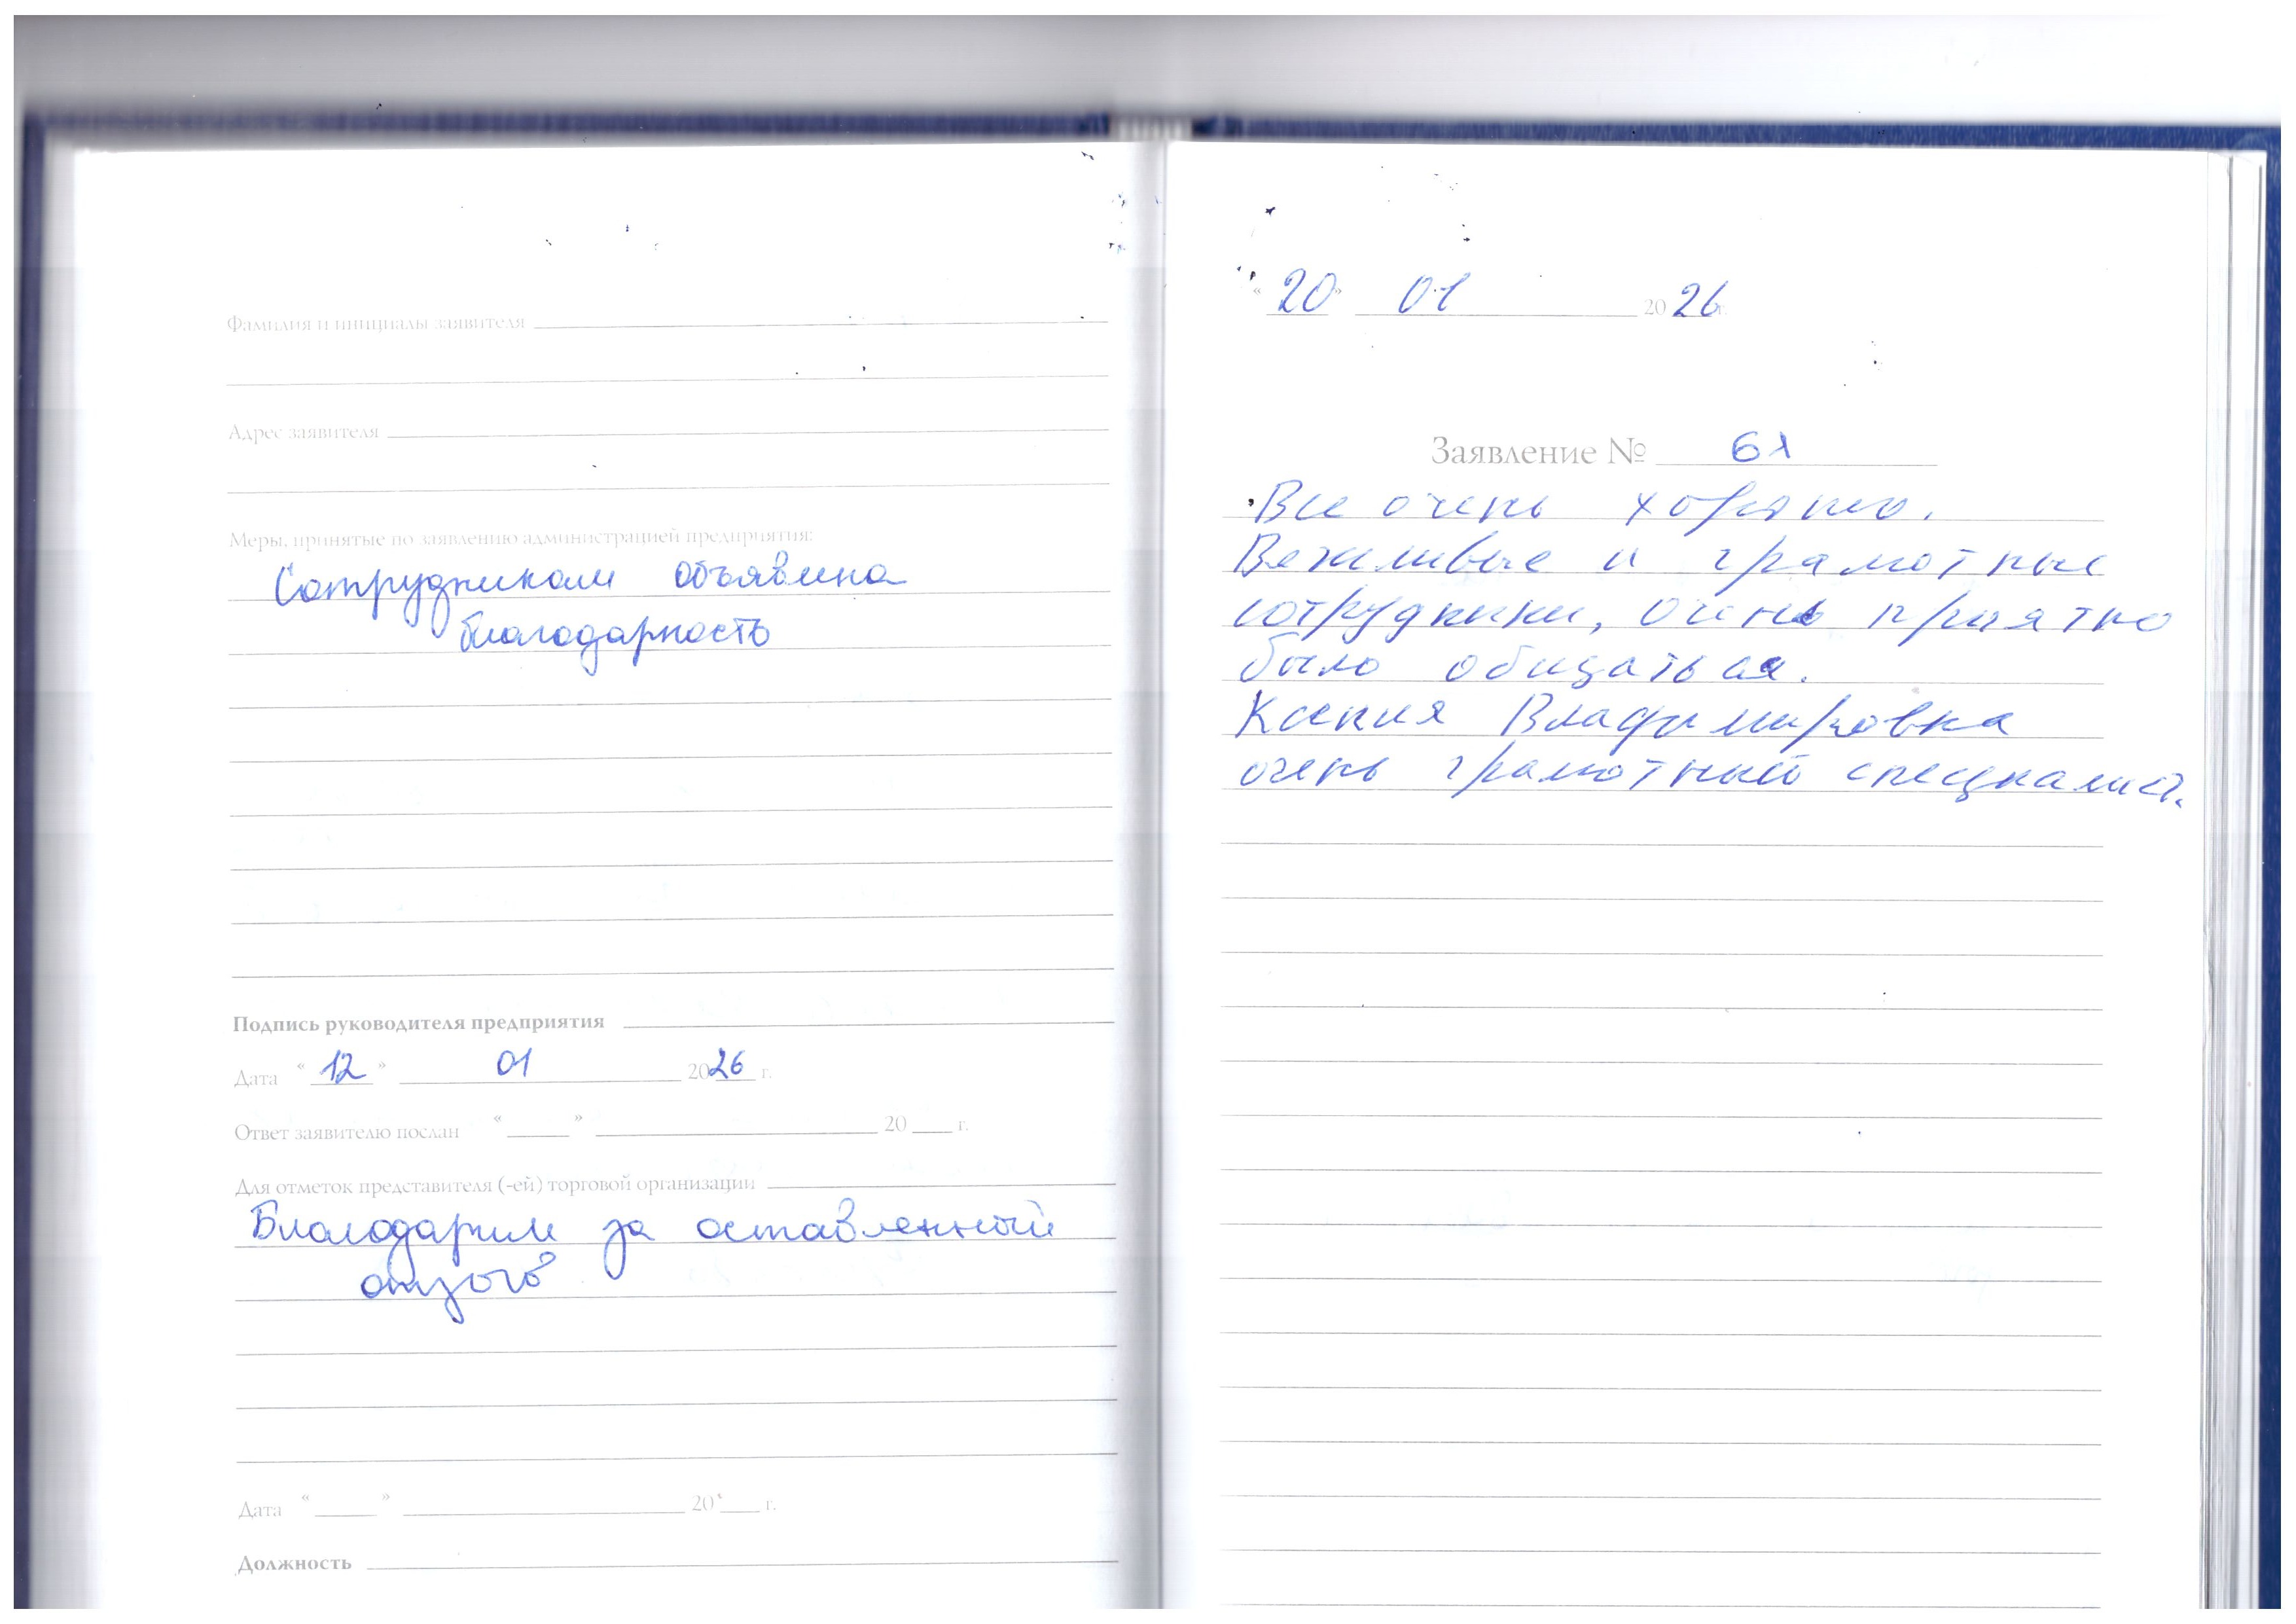 Фамилия и инициалы заявителя
Адрес заявителя
Меры, принятые по заявлению администрацией предприятия:
Сотрудникам объявлена
благодарность
Подпись руководителя предприятия
Дата "12" 01 2026 г.
Ответ заявителю послан " " 20 г.
Для отметок представителя (-ей) торговой организации
Благодарим за оставленный
отзыв
Дата " " 20 г.
Должность
"20" 01 2026 г.
Заявление № 61
Все очень хорошо.
Вежливые и грамотные
сотрудники, очень приятно
было общаться.
Ксения Владимировна
очень грамотный специалист.